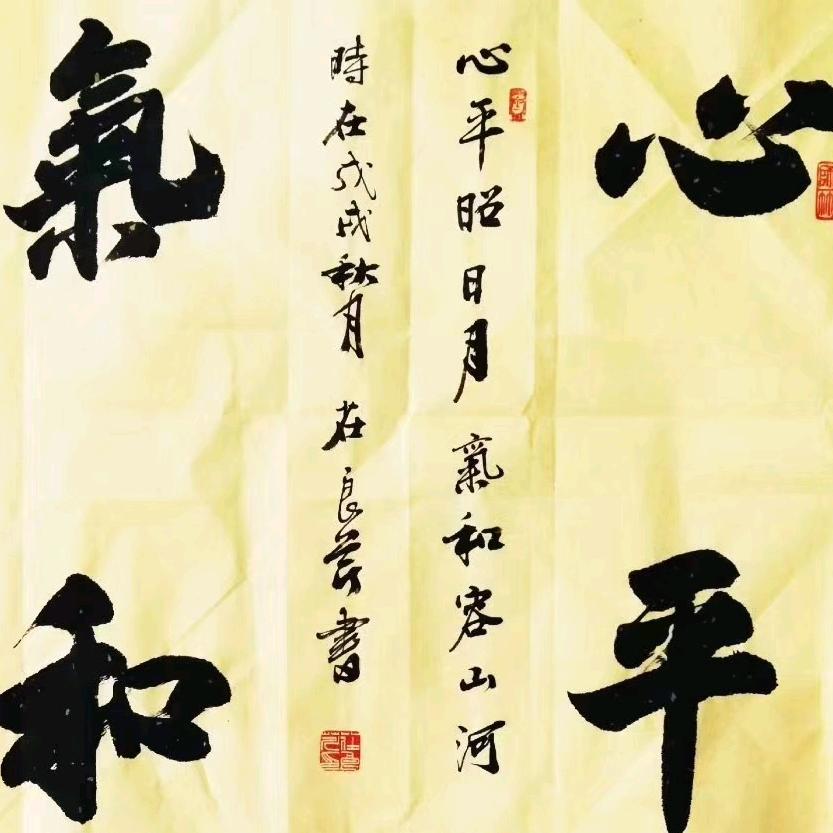 心平
心平昭日月 氣和容山河
時在戊戌秋月 良芳書
氣和